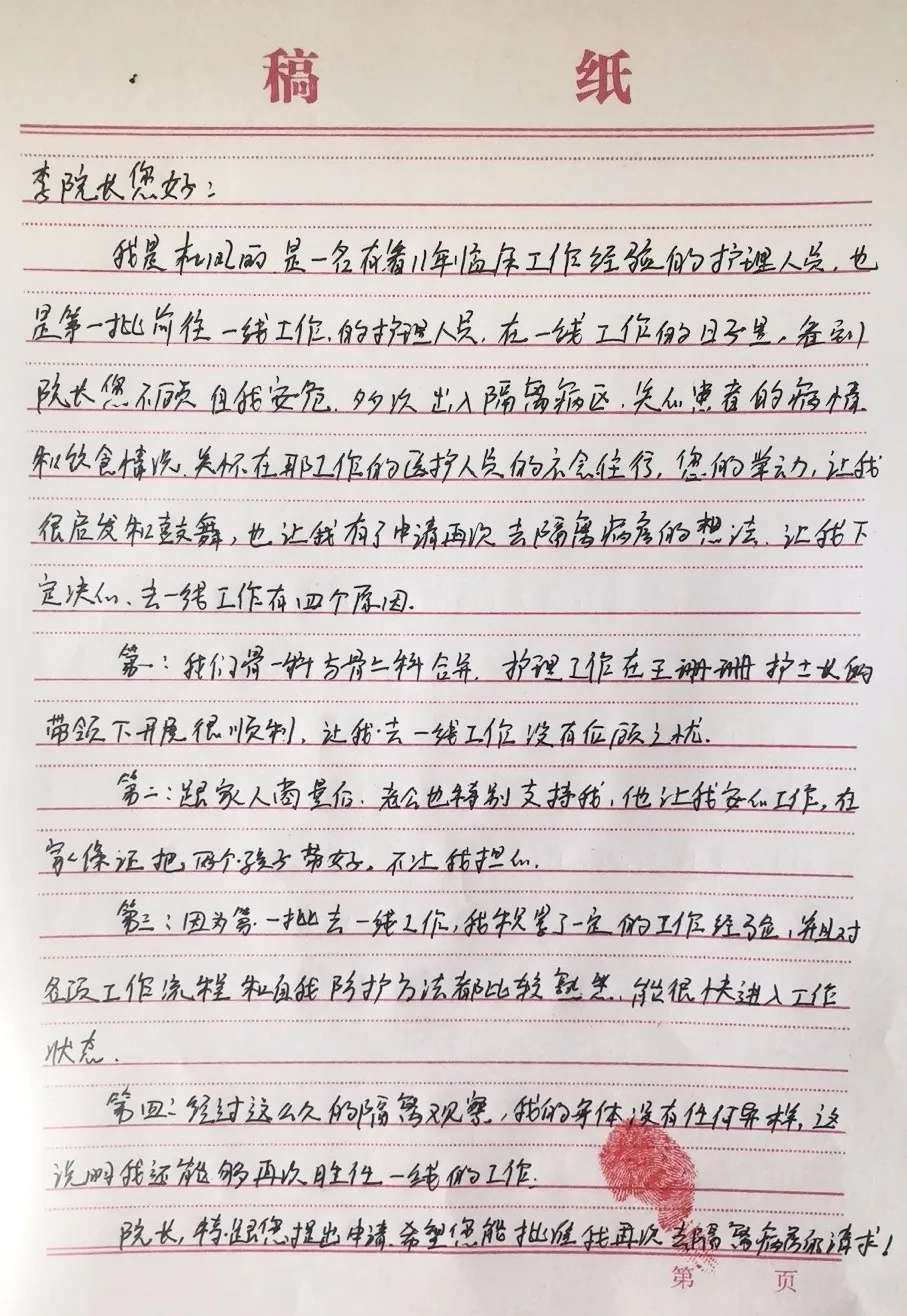 稿 纸
李院长您好：
我是杜凤丽是一名有着11年临床工作经验的护理人员，也
是第一批前往一线工作的护理人员，在一线工作的日子里，看到
院长您不顾自我安危，多次出入隔离病区，关心患者的病情
和饮食情况，关怀在那工作的医护人员的衣食住行，您的举动，让我
很启发和鼓舞，也让我有了申请再次去隔离病房的想法，让我下
定决心、去一线工作有四个原因．
第一：我们骨一科与骨二科合并，护理工作在王珊珊护士长的
带领下开展很顺利，让我去一线工作没有后顾之忧．
第二：跟家人商量后，老公也特别支持我，他让我安心工作，在
家保证把两个孩子带好，不让我担心．
第三：因为第一批去一线工作，我积累了一定的工作经验，并且对
各项工作流程和自我防护方法都比较熟悉，能很快进入工作
状态．
第四：经过这么久的隔离观察，我的身体没有任何异样，这
说明我还能够再次胜任一线的工作．
院长，特跟您提出申请，希望您能批准我再次去隔离病房的请求！
第 页